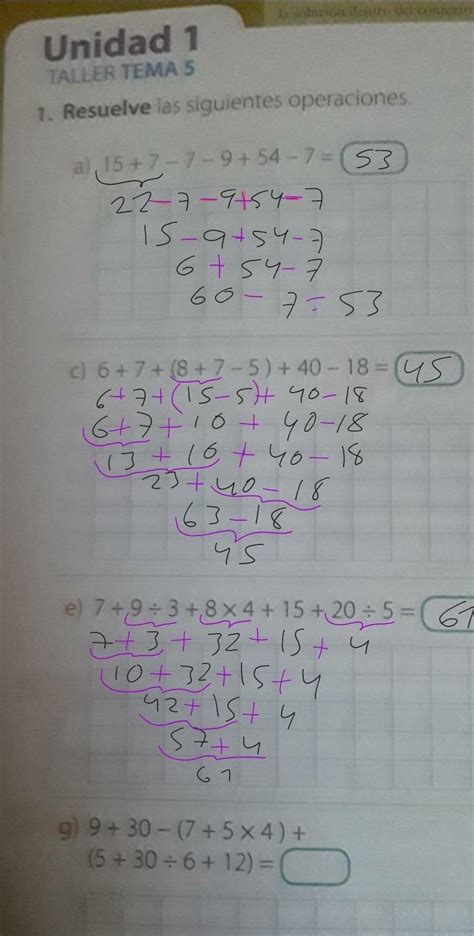 la solución dentro del contexto
Unidad 1
TALLER TEMA 5
1. Resuelve las siguientes operaciones.
a) 15 + 7 − 7 − 9 + 54 − 7 = 53
22 − 7 − 9 + 54 − 7
15 − 9 + 54 − 7
6 + 54 − 7
60 − 7 = 53
c) 6 + 7 + (8 + 7 − 5) + 40 − 18 = 45
6 + 7 + (15 − 5) + 40 − 18
6 + 7 + 10 + 40 − 18
13 + 10 + 40 − 18
23 + 40 − 18
63 − 18
45
e) 7 + 9 ÷ 3 + 8 × 4 + 15 + 20 ÷ 5 = 61
7 + 3 + 32 + 15 + 4
10 + 32 + 15 + 4
42 + 15 + 4
57 + 4
61
g) 9 + 30 − (7 + 5 × 4) +
(5 + 30 ÷ 6 + 12) =